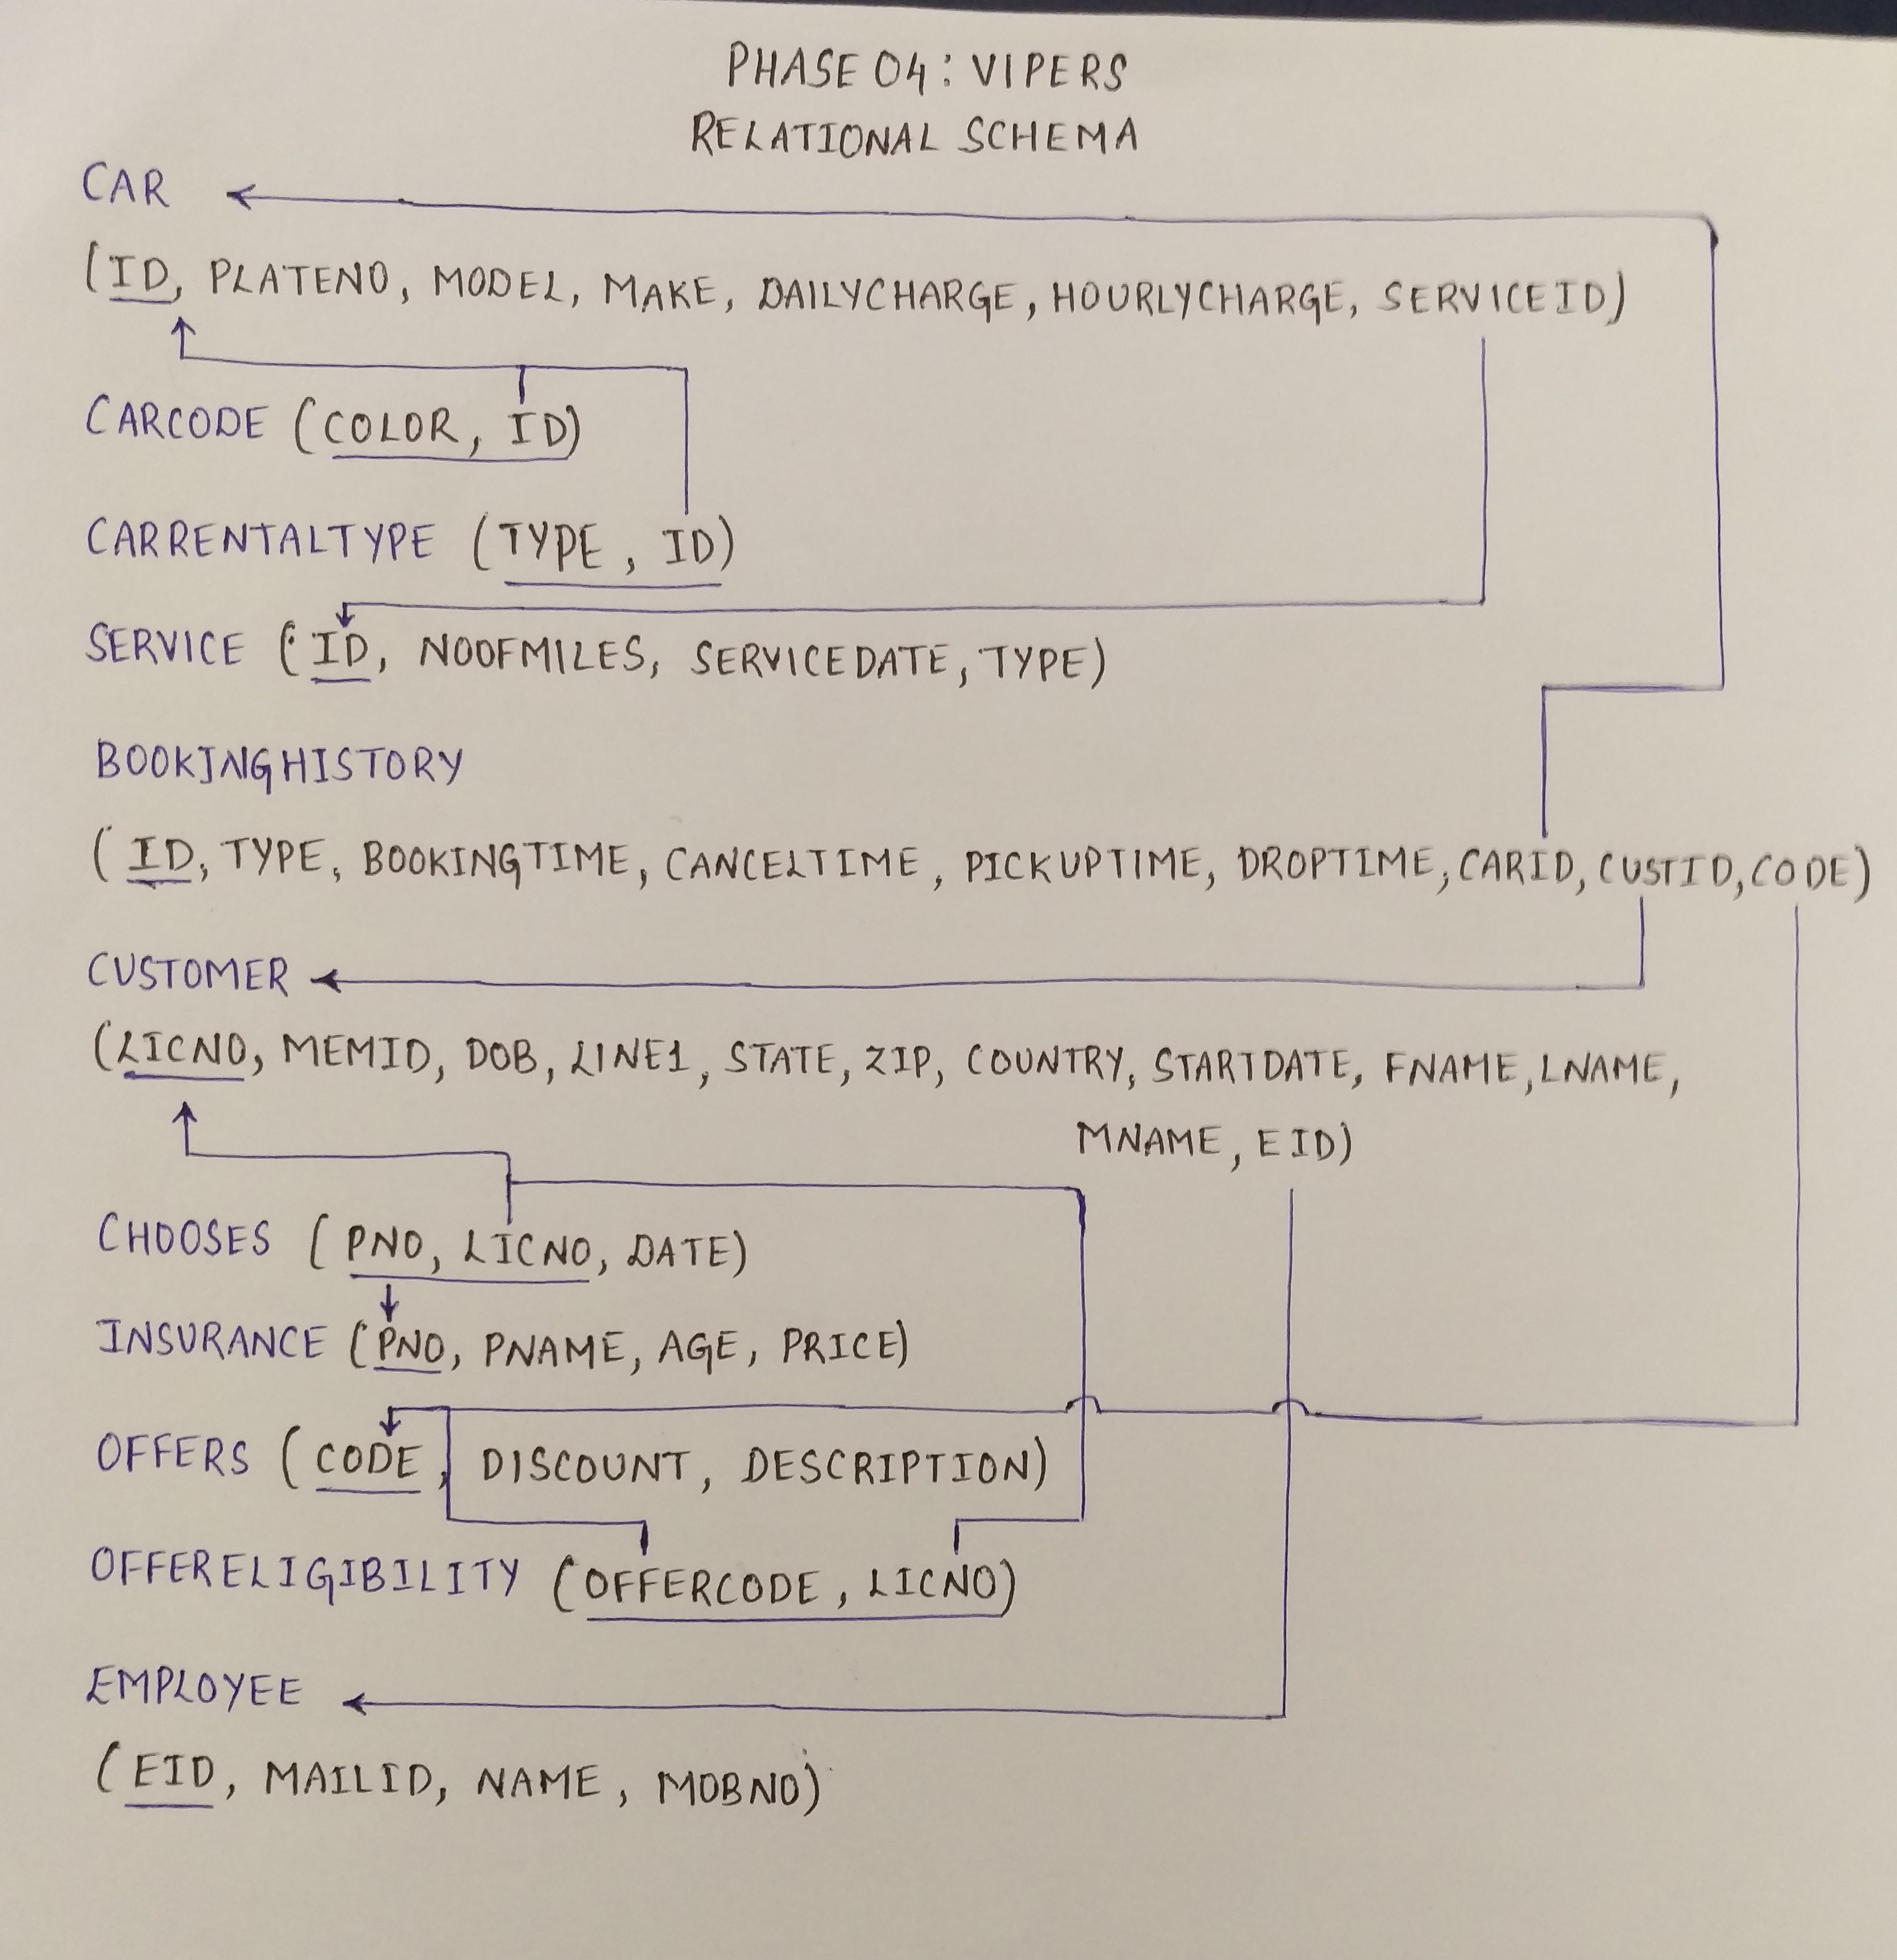 PHASE 04: VIPERS
RELATIONAL SCHEMA
CAR
(ID, PLATENO, MODEL, MAKE, DAILYCHARGE, HOURLYCHARGE, SERVICEID)
CARCODE (COLOR, ID)
CARRENTALTYPE (TYPE, ID)
SERVICE (ID, NOOFMILES, SERVICEDATE, TYPE)
BOOKINGHISTORY
(ID, TYPE, BOOKINGTIME, CANCELTIME, PICKUPTIME, DROPTIME, CARID, CUSTID, CODE)
CUSTOMER
(LICNO, MEMID, DOB, LINE1, STATE, ZIP, COUNTRY, STARTDATE, FNAME, LNAME,
MNAME, EID)
CHOOSES (PNO, LICNO, DATE)
INSURANCE (PNO, PNAME, AGE, PRICE)
OFFERS (CODE, DISCOUNT, DESCRIPTION)
OFFERELIGIBILITY (OFFERCODE, LICNO)
EMPLOYEE
(EID, MAILID, NAME, MOBNO)